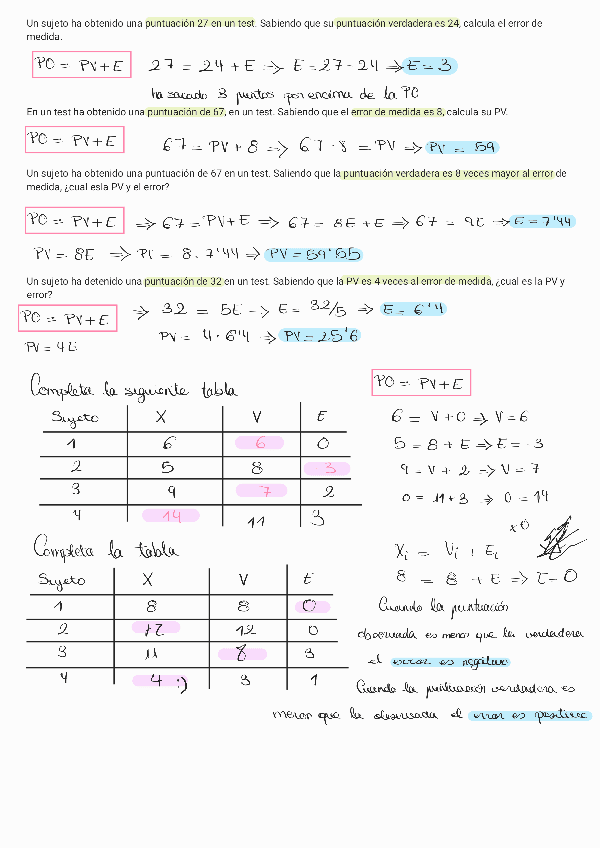 Un sujeto ha obtenido una puntuación 27 en un test. Sabiendo que su puntuación verdadera es 24, calcula el error de
medida.
PO = PV+E 27 = 24 + E => E = 27 - 24 => E = 3
ha sacado 3 puntos por encima de la PO
En un test ha obtenido una puntuación de 67, en un test. Sabiendo que el error de medida es 8, calcula su PV.
PO = PV+E 67 = PV + 8 => 67 - 8 = PV => PV = 59
Un sujeto ha obtenido una puntuación de 67 en un test. Saliendo que la puntuación verdadera es 8 veces mayor al error de
medida, ¿cual esla PV y el error?
PO = PV+E => 67 = PV+E => 67 = 8E + E => 67 = 9E => E = 7'44
PV = 8E => PV = 8 · 7'44 => PV = 59'55
Un sujeto ha detenido una puntuación de 32 en un test. Sabiendo que la PV es 4 veces al error de medida, ¿cual es la PV y
error?
PO = PV+E => 32 = 5E -> E = 32/5 => E = 6'4
PV = 4E PV = 4 · 6'4 => PV = 25'6
Completa la siguiente tabla
Sujeto X V E
1 6 6 0
2 5 8 3
3 9 7 2
4 14 11 3
PO = PV+E
6 = V + 0 => V = 6
5 = 8 + E => E = -3
9 = V + 2 => V = 7
0 = 11 + 3 => 0 = 14
Completa la tabla
Sujeto X V E
1 8 8 0
2 12 12 0
3 11 8 3
4 4 :) 3 1
x0
Xi = Vi + Ei
8 = 8 + E => E = 0
Cuando la puntuación
observada es menor que la verdadera
el error es negativo
Cuando la puntuación verdadera es
menor que la observada el error es positivo